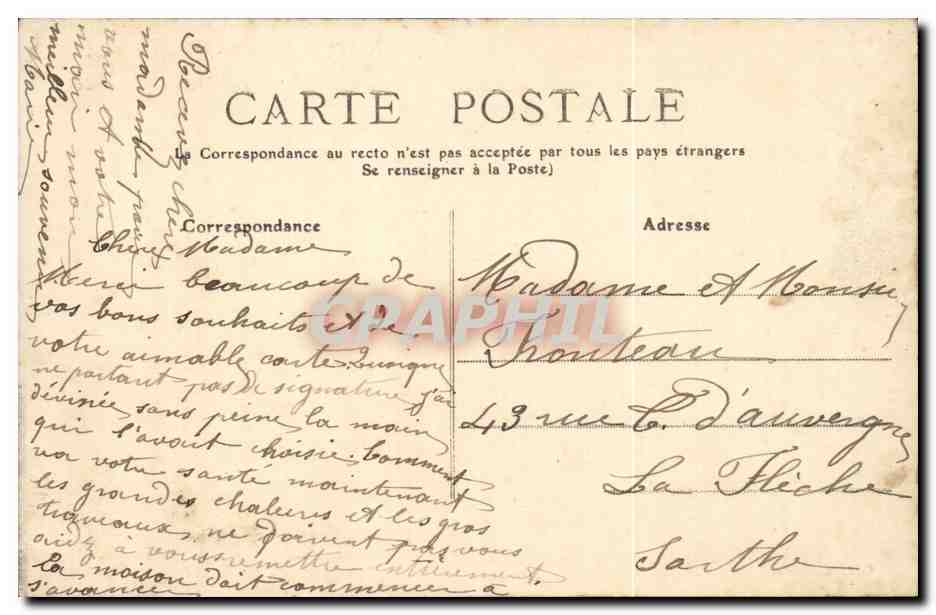 CARTE POSTALE
La Correspondance au recto n'est pas acceptée par tous les pays étrangers
Se renseigner à la Poste)
Correspondance
Adresse
Chère Madame
Merci beaucoup de
vos bons souhaits et de
votre aimable carte. Quoique
ne portant pas de signature j'ai
devinée sans peine la main
qui l'avait choisie. Comment
va votre santé maintenant
les grandes chaleurs et les gros
travaux ne doivent pas vous
aider à vous remettre entièrement.
La maison doit commencer à
s'avancer
Recevez chère
madame pour
vous et votre
mari mon
meilleur souvenir
Marie
Madame et Monsieur
43 rue d'auvergne
La Flèche
Sarthe
CPAPHIL